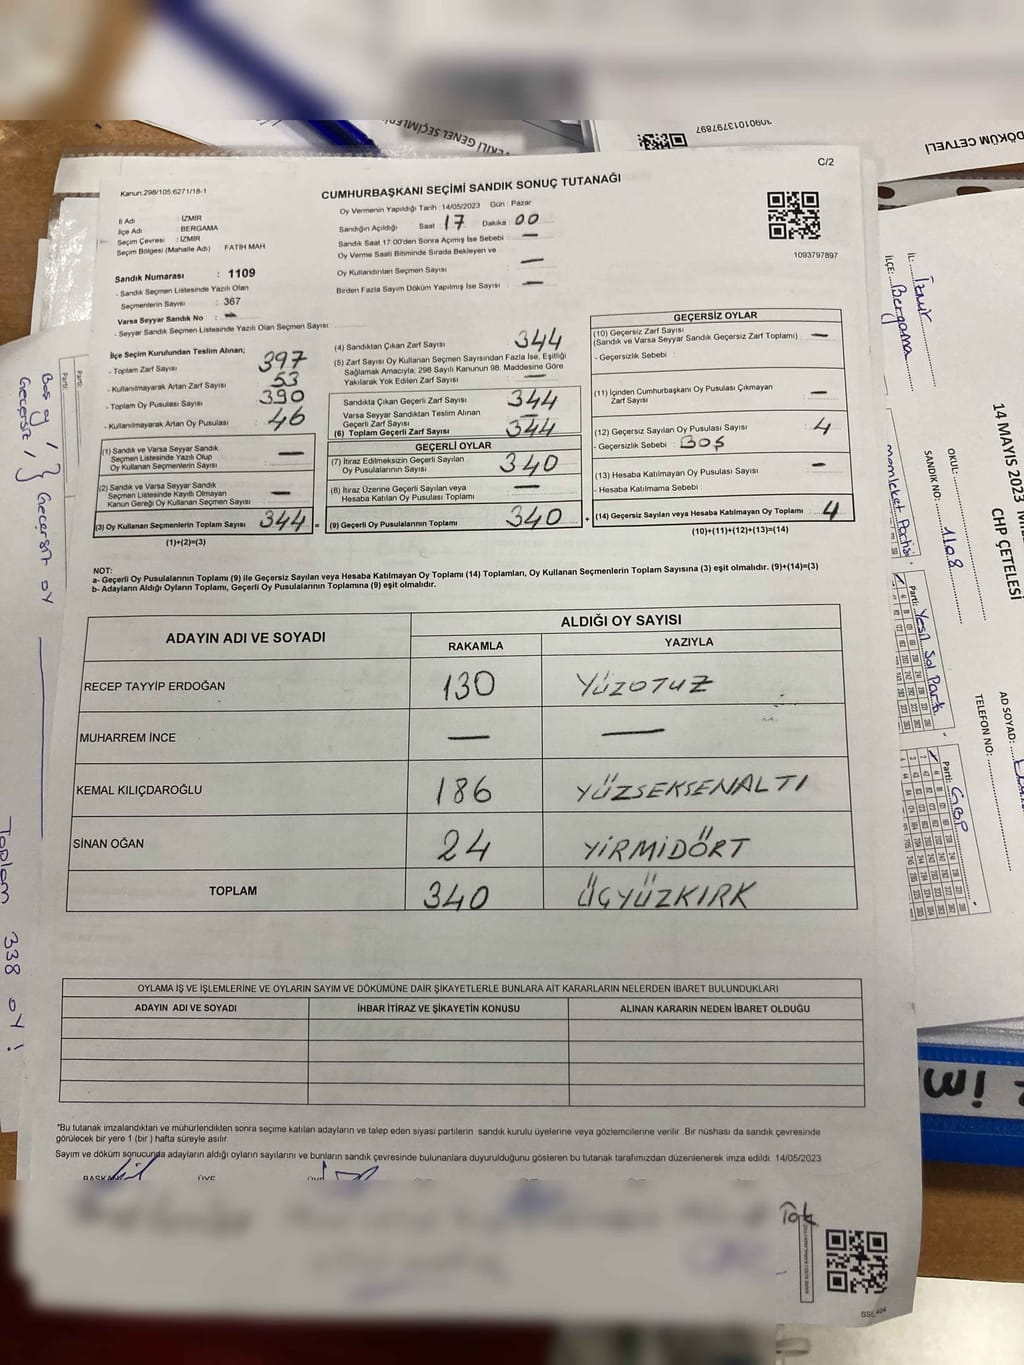 C/2
Kanun:298/105,6271/18-1
CUMHURBAŞKANI SEÇİMİ SANDIK SONUÇ TUTANAĞI
Oy Vermenin Yapıldığı Tarih :14/05/2023 Gün : Pazar
İl Adı : İZMİR
İlçe Adı : BERGAMA
Seçim Çevresi : İZMİR
Seçim Bölgesi (Mahalle Adı) FATİH MAH
Sandığın Açıldığı Saat : 17 Dakika : 00
Sandık Saat 17:00'den Sonra Açımış İse Sebebi : —
Oy Verme Saati Bitiminde Sırada Bekleyen ve
Oy Kullandırılan Seçmen Sayısı : —
Birden Fazla Sayım Döküm Yapılmış İse Sayısı : —
1093797897
Sandık Numarası : 1109
- Sandık Seçmen Listesinde Yazılı Olan
Seçmenlerin Sayısı : 367
Varsa Seyyar Sandık No : —
- Seyyar Sandık Seçmen Listesinde Yazılı Olan Seçmen Sayısı:
İlçe Seçim Kurulundan Teslim Alınan;
- Toplam Zarf Sayısı 397
- Kullanılmayarak Artan Zarf Sayısı 53
- Toplam Oy Pusulası Sayısı 390
- Kullanılmayarak Artan Oy Pusulası 46
(1) Sandık ve Varsa Seyyar Sandık
Seçmen Listesinde Yazılı Olup
Oy Kullanan Seçmenlerin Sayısı —
(2) Sandık ve Varsa Seyyar Sandık
Seçmen Listesinde Kayıtlı Olmayan
Kanun Gereği Oy Kullanan Seçmen Sayısı —
(3) Oy Kullanan Seçmenlerin Toplam Sayısı 344 =
(1)+(2)=(3)
(4) Sandıktan Çıkan Zarf Sayısı 344
(5) Zarf Sayısı Oy Kullanan Seçmen Sayısından Fazla İse, Eşitliği
Sağlamak Amacıyla, 298 Sayılı Kanunun 98. Maddesine Göre
Yakılarak Yok Edilen Zarf Sayısı —
Sandıkta Çıkan Geçerli Zarf Sayısı 344
Varsa Seyyar Sandıktan Teslim Alınan
Geçerli Zarf Sayısı —
(6) Toplam Geçerli Zarf Sayısı 344
GEÇERLİ OYLAR
(7) İtiraz Edilmeksizin Geçerli Sayılan
Oy Pusulalarının Sayısı 340
(8) İtiraz Üzerine Geçerli Sayılan veya
Hesaba Katılan Oy Pusulası Toplamı —
(9) Geçerli Oy Pusulalarının Toplamı 340 +
GEÇERSİZ OYLAR
(10) Geçersiz Zarf Sayısı
(Sandık ve Varsa Seyyar Sandık Geçersiz Zarf Toplamı) —
- Geçersizlik Sebebi :
(11) İçinden Cumhurbaşkanı Oy Pusulası Çıkmayan
Zarf Sayısı —
(12) Geçersiz Sayılan Oy Pusulası Sayısı 4
- Geçersizlik Sebebi : BOŞ
(13) Hesaba Katılmayan Oy Pusulası Sayısı —
- Hesaba Katılmama Sebebi :
(14) Geçersiz Sayılan veya Hesaba Katılmayan Oy Toplamı 4
(10)+(11)+(12)+(13)=(14)
NOT:
a- Geçerli Oy Pusulalarının Toplamı (9) ile Geçersiz Sayılan veya Hesaba Katılmayan Oy Toplamı (14) Toplamları, Oy Kullanan Seçmenlerin Toplam Sayısına (3) eşit olmalıdır. (9)+(14)=(3)
b- Adayların Aldığı Oyların Toplamı, Geçerli Oy Pusulalarının Toplamına (9) eşit olmalıdır.
ADAYIN ADI VE SOYADI ALDIĞI OY SAYISI
RAKAMLA YAZIYLA
RECEP TAYYİP ERDOĞAN 130 YÜZOTUZ
MUHARREM İNCE — —
KEMAL KILIÇDAROĞLU 186 YÜZSEKSENALTI
SİNAN OĞAN 24 YİRMİDÖRT
TOPLAM 340 ÜÇYÜZKIRK
OYLAMA İŞ VE İŞLEMLERİNE VE OYLARIN SAYIM VE DÖKÜMÜNE DAİR ŞİKAYETLERLE BUNLARA AİT KARARLARIN NELERDEN İBARET BULUNDUKLARI
ADAYIN ADI VE SOYADI İHBAR İTİRAZ VE ŞİKAYETİN KONUSU ALINAN KARARIN NEDEN İBARET OLDUĞU
*Bu tutanak imzalandıktan ve mühürlendikten sonra seçime katılan adayların ve talep eden siyasi partilerin sandık kurulu üyelerine veya gözlemcilerine verilir. Bir nüshası da sandık çevresinde
görülecek bir yere 1 (bir ) hafta süreyle asılır.
Sayım ve döküm sonucunda adayların aldığı oyların sayılarını ve bunların sandık çevresinde bulunanlara duyurulduğunu gösteren bu tutanak tarafımızdan düzenlenerek imza edildi. 14/05/2023
Boş oy
Geçersiz
Geçersiz oy
Toplam 338 oy!
DÖKÜM CETVELİ
İL: İzmir
İLÇE: Bergama
14 MAYIS 2023
CHP ÇETELESİ
OKUL:
SANDIK NO: 1108
AD SOYAD:
TELEFON NO:
memleket Partisi
Parti: Yeşil Sol Parti
Parti: GBP
Parti:
Parti: